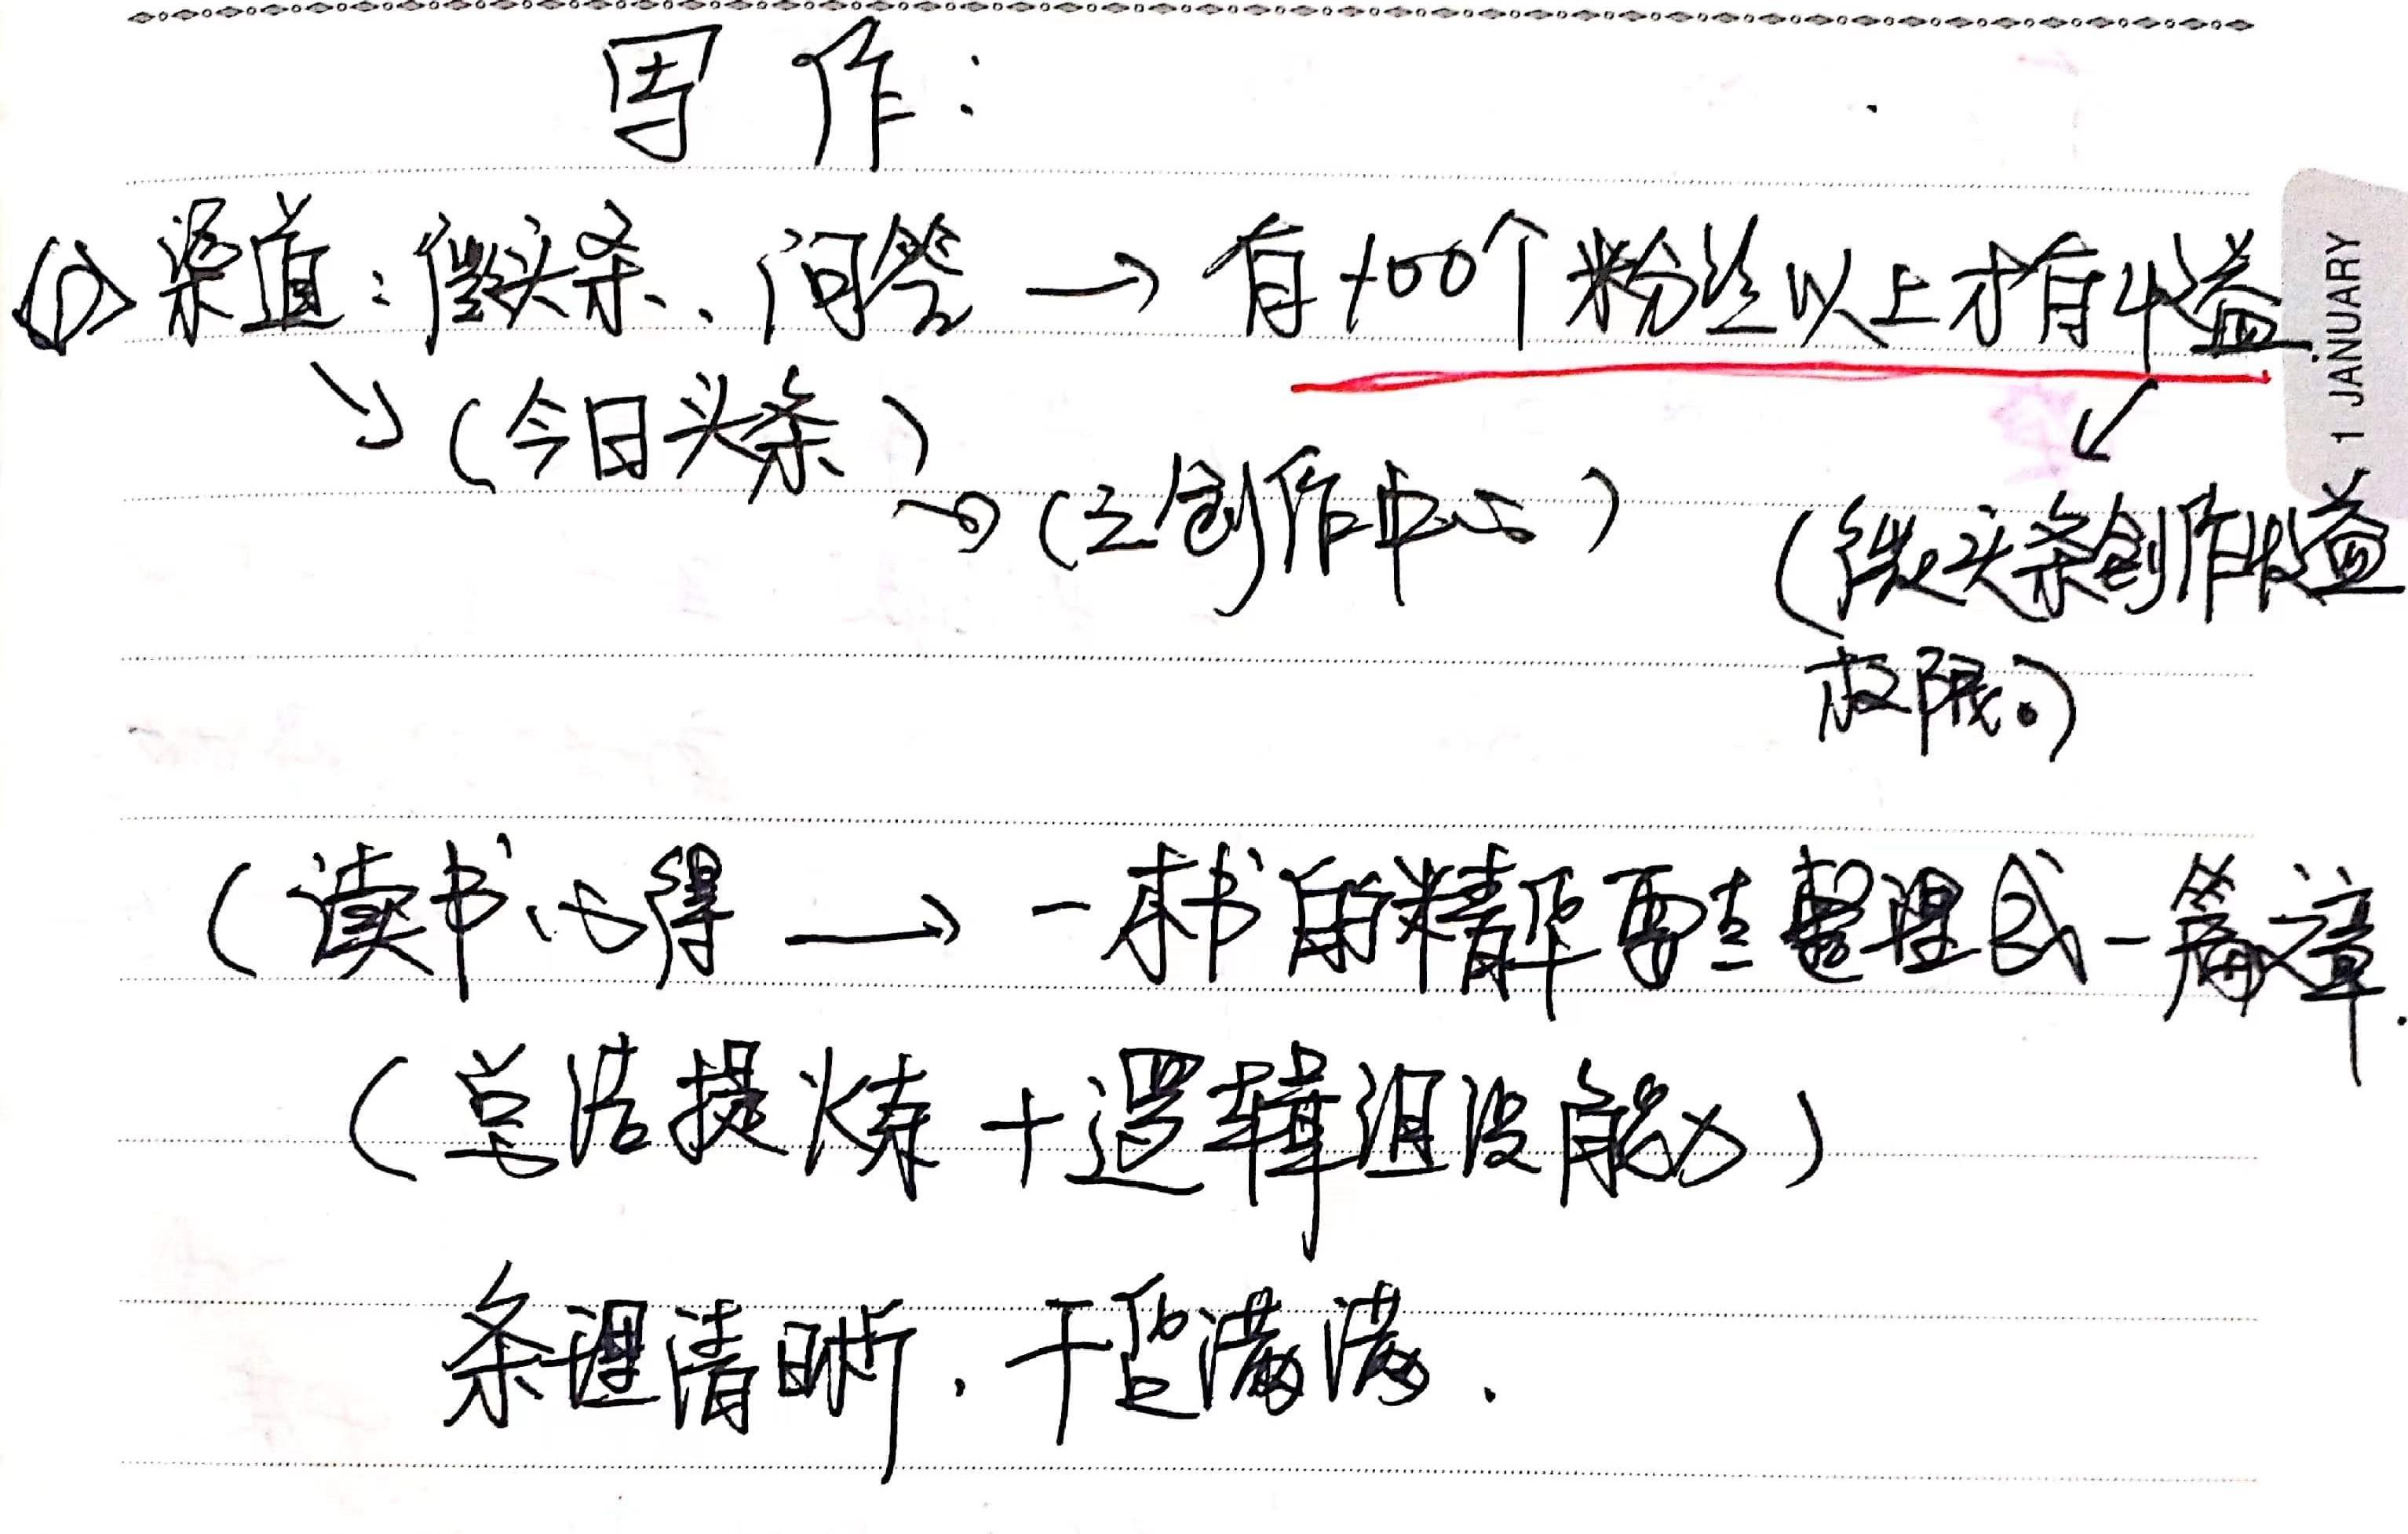 写作：
(1) 渠道：微头条、问答 → 有100个粉丝以上才有收益
↘ (今日头条)
→ (去创作中心)
↙
(微头条创作收益
权限。)
(读书心得 → 一本书的精华要去整理成一篇文章.
(总结提炼 + 逻辑组没能力)
条理清晰. 干货满满.
1 JANUARY